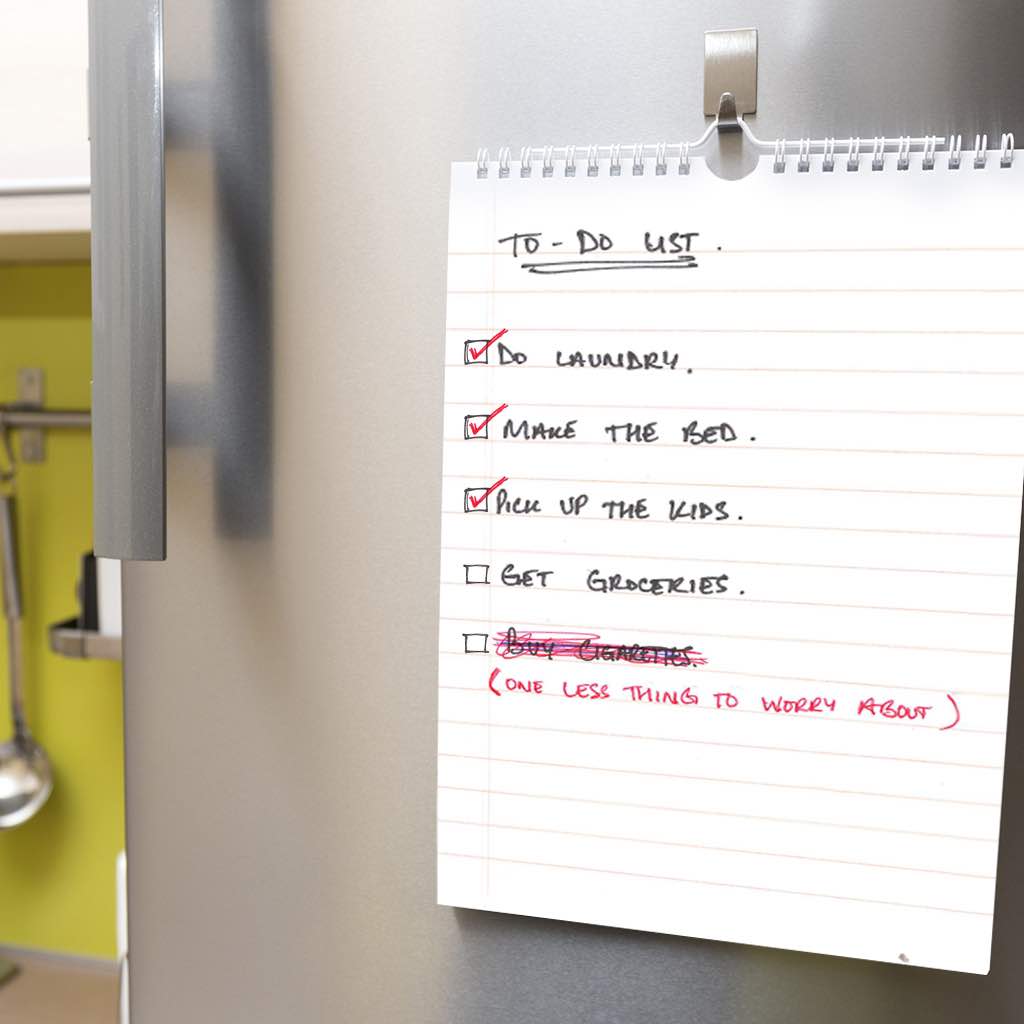 TO-DO LIST.
DO LAUNDRY.
MAKE THE BED.
PICK UP THE KIDS.
GET GROCERIES.
BUY CIGARETTES.
(ONE LESS THING TO WORRY ABOUT)